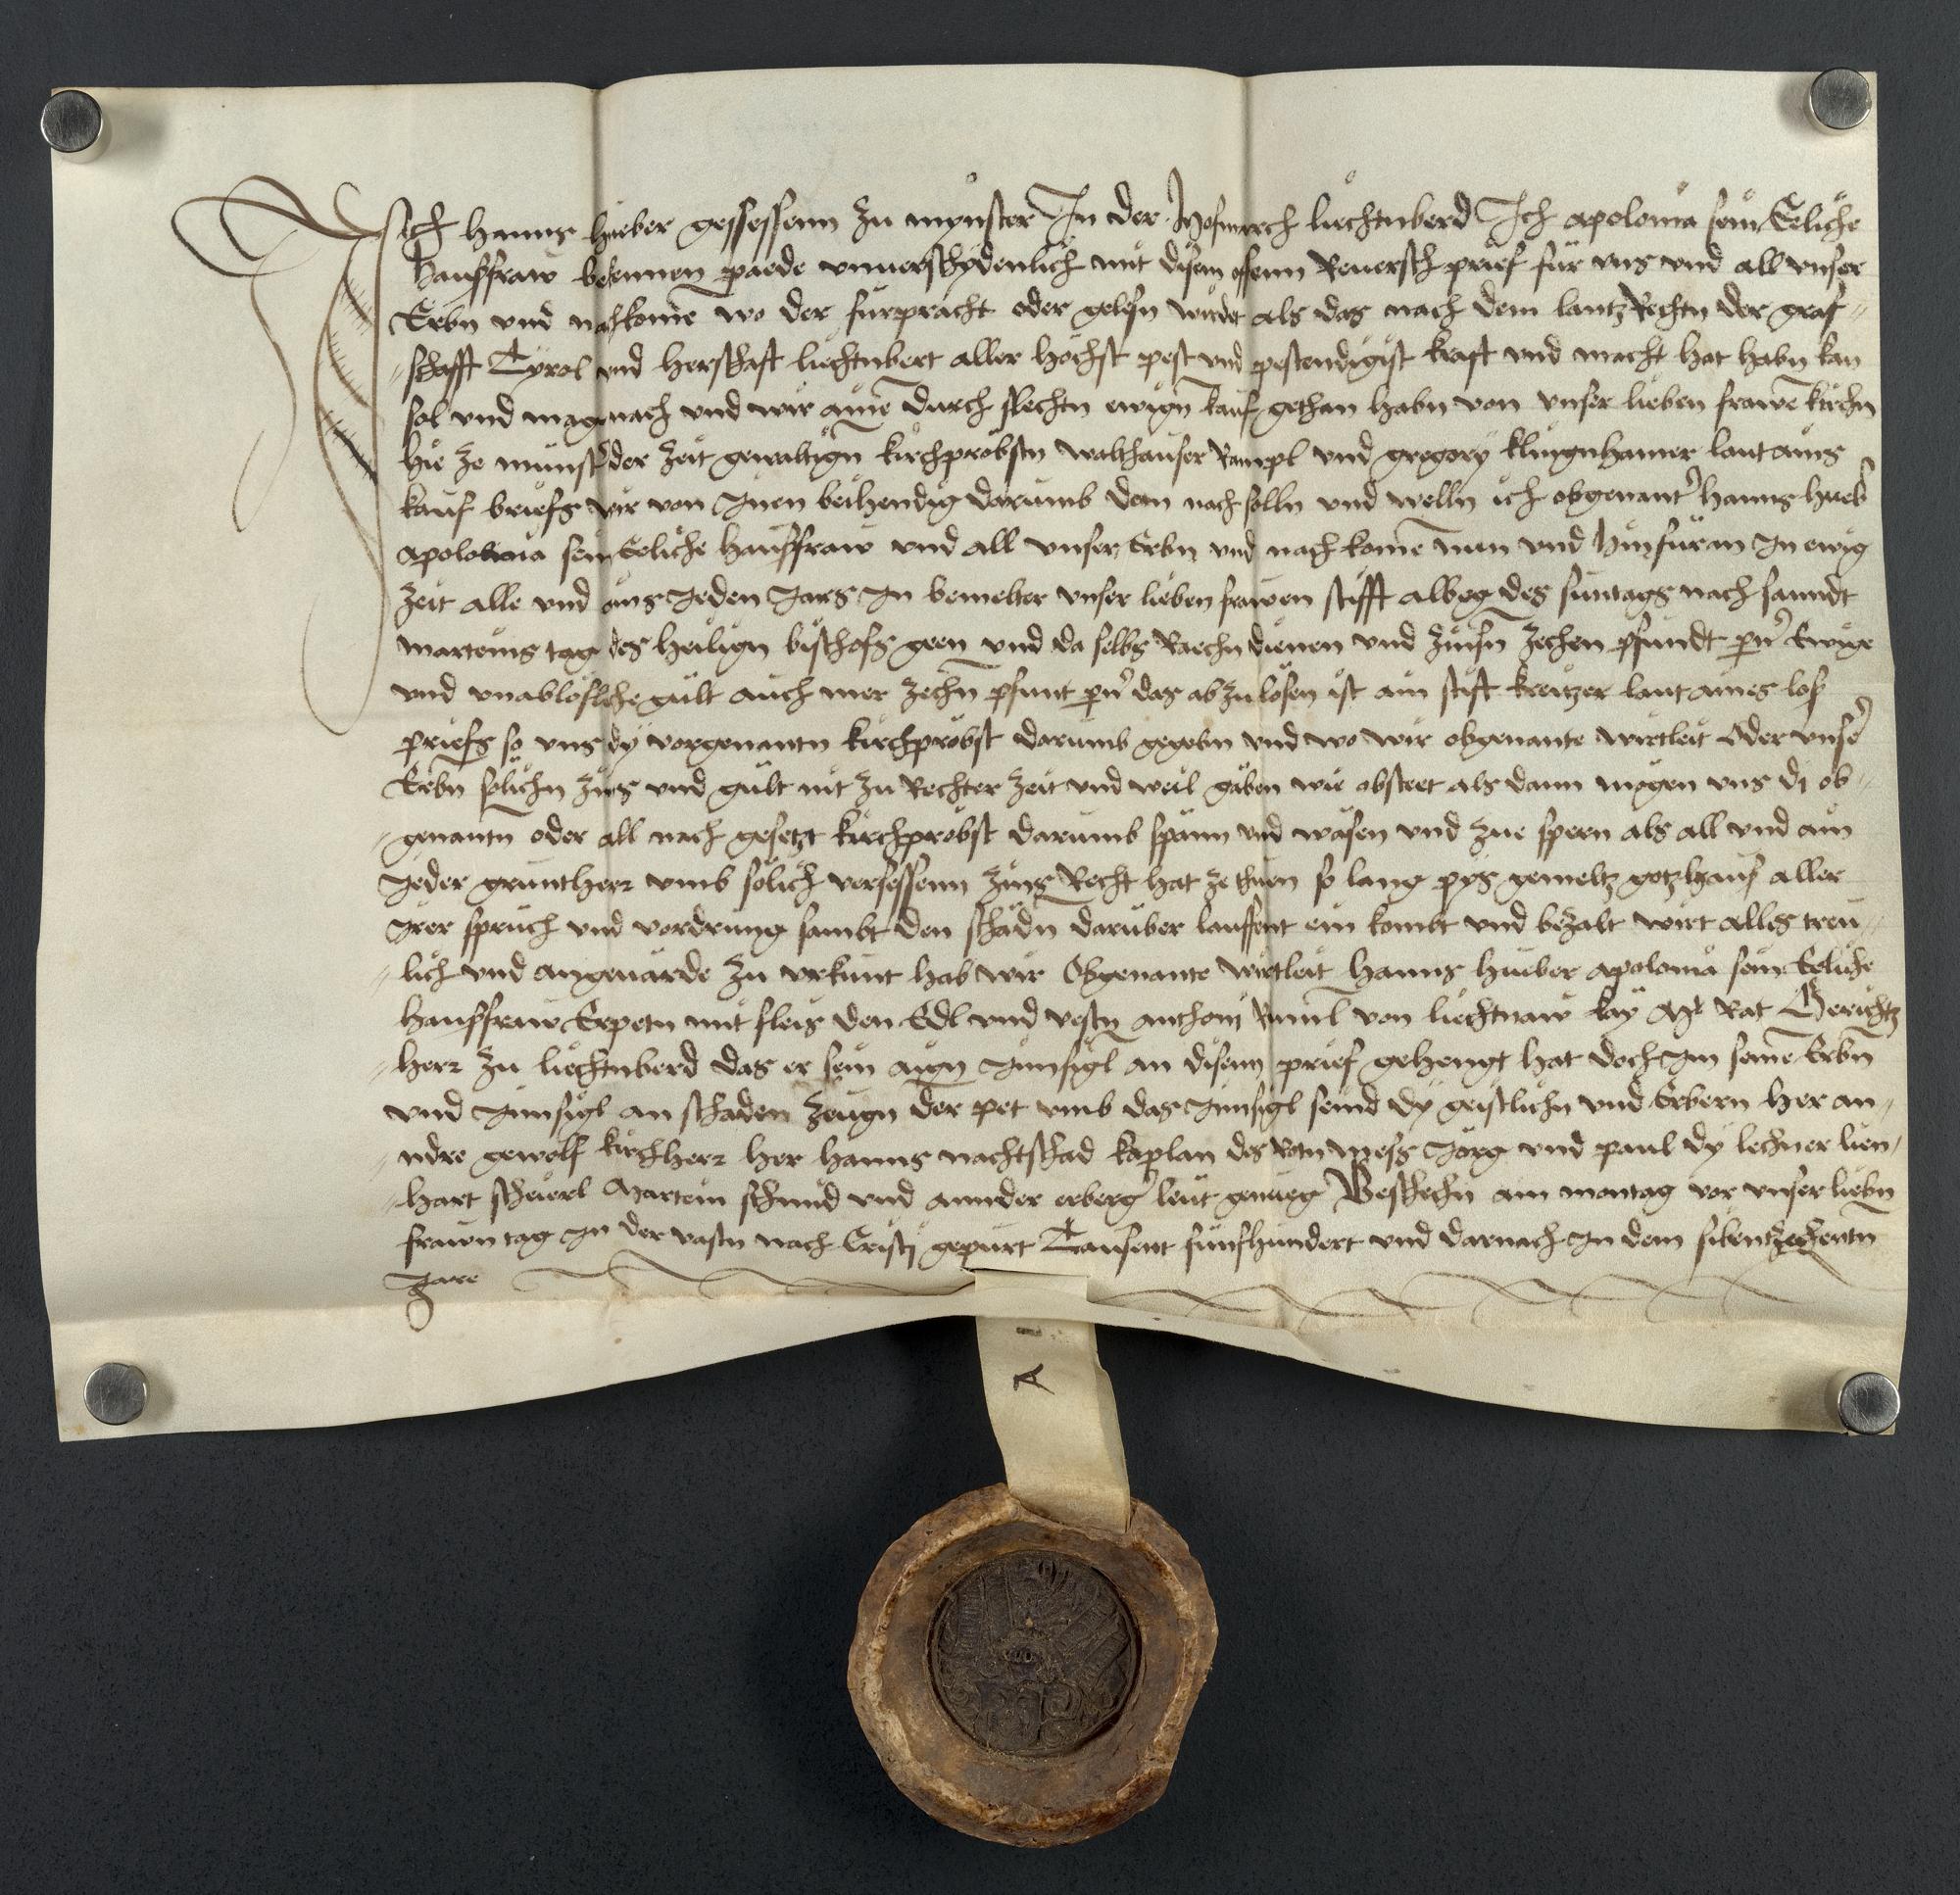 Ich hanns hueber gessessenn zu mynster In der Hofmarch liechtnberd Ich apolonia sein Eeliche
hausfraw bekennen paede vnuerschydenlich mit disem offenn Reuersch prief für vns vnd all vnser
Erbn vnd nachkome wo der fürpracht oder gelesn wirdet als das nach dem lantz Rechtn der graf-
-schafft Tyrol vnd herschaft liechtnbert aller höchst pest vnd pestendigist kraft vnd macht hat habn kan
sol vnd mag nach vnd wir aine durch slechtn ewign kauf gethan habn von vnser lieben frawe kirchn
hie ze münster der zeit gewaltign kirchpröbstn walthauser Rampl vnd gregory klingnhamer laut ains
kauf briefs wir von Inen beihendig darumb dem nach solln vnd welln ich obgenantr hanns hueb
apolonia sein Eeliche hausfraw vnd all vnser Erbn vnd nachkome nun vnd hinfüran In ewig
zeit alle vnd ains Jeden Jars In bemelter vnser lieben frawen stifft albeg des suntags nach sanndt
marteins tag des heilign bischofs geen vnd da selbs Raechn dienen vnd zinsn zechen pfundt pr Ewige
vnd vnablöslche gült auch mer zechn pfunt pr das abzulösen ist ain stift kreitzer laut aines los
priefs so vns dy vorgenantn kirchpröbst darumb gegebn vnd wo wir obgenante wirtleit oder vnser
Erbn sölichn zins vnd gült nit zu Rechter zeit vnd weil gäben wie obsteet als dann mögen vns di ob-
-genantn oder all nach gesetzt kirchpröbst darumb spänn vnd wäsen vnd zue spern als all vnd ain
Jeder gruntherr vmb sölich versessenn zins Recht hat ze thuen so lang pys gemeltz gotzhaus aller
Irer spruch vnd vordrung sambt den schädn darüber lauffent ein kombt vnd bezalt wirt alles treu-
-lich vnd angeuärde zu vrkunt hab wir Obgenante wirtleit hanns hueber apolonia sein Eeliche
hausfraw Erpetn mit fleis den Edl vnd vestn anthoni Ruml von liechtnaw kay Mt Rat Gerichtz
-herr zu liechtnberd das er sein aign Innsigl an disenn prief gehengt hat doch Im seine Erbn
vnd Innsigl an schaden zeugn der pet vmb das Innsigl seind dy geistlichn vnd Erbern her an-
-ndre gewolf kirchherr her hanns nachtschad kaplan des Rotn mess Jörg vnd paul dy lechner lien-
-hart scheierl Martein schmid vnd annder erberg leut genueg Beschechn am montag vor vnser liebn
frawn tag In der vastn nach Cristi gepurt Tausent funfhundert vnd darnach In dem sibentzechentn
Jare
A